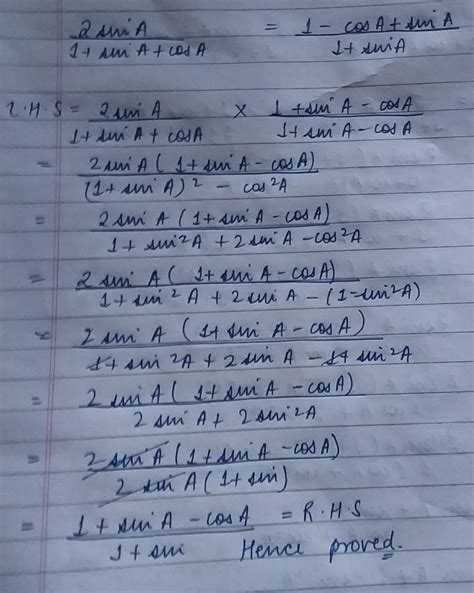 2 sin A / 1 + sin A + cos A = 1 - cos A + sin A / 1 + sin A
L.H.S = 2 sin A / 1 + sin A + cos A × 1 + sin A - cos A / 1 + sin A - cos A
= 2 sin A ( 1 + sin A - cos A) / (1 + sin A)² - cos²A
= 2 sin A (1 + sin A - cos A) / 1 + sin²A + 2 sin A - cos²A
= 2 sin A ( 1 + sin A - cos A) / 1 + sin²A + 2 sin A - (1 - sin²A)
= 2 sin A (1 + sin A - cos A) / 1 + sin²A + 2 sin A - 1 + sin²A
= 2 sin A ( 1 + sin A - cos A) / 2 sin A + 2 sin²A
= 2 sin A (1 + sin A - cos A) / 2 sin A (1 + sin)
= 1 + sin A - cos A / 1 + sin = R.H.S
Hence proved.